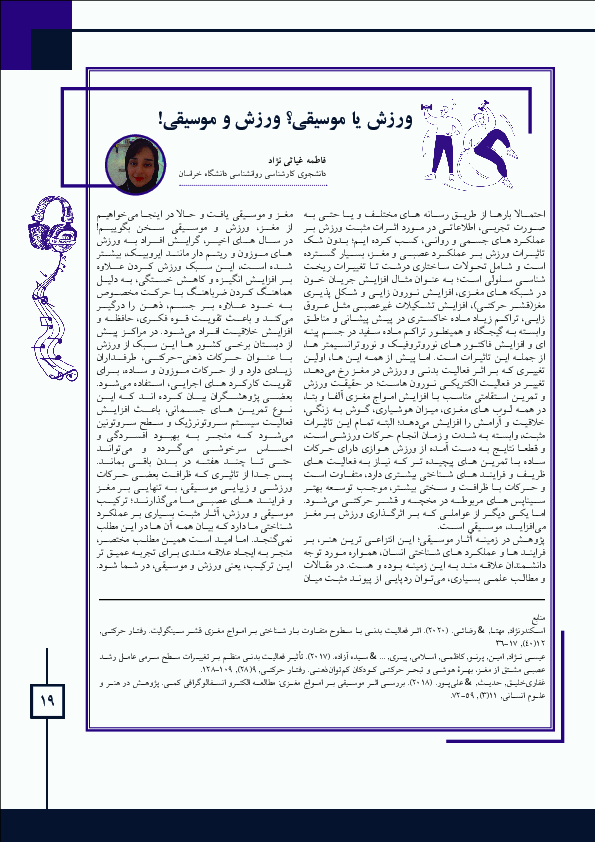 ورزش یا موسیقی؟ ورزش و موسیقی!
فاطمه غیاثی نژاد
دانشجوی کارشناسی روانشناسی دانشگاه خراسان
احتمالا بارها از طریق رسانه های مختلف و یا حتی به
صورت تجربی، اطلاعاتی در مورد اثرات مثبت ورزش بر
عملکرد های جسمی و روانی، کسب کرده ایم؛ بدون شک
تاثیرات ورزش بر عملکرد عصبی و مغز، بسیار گسترده
است و شامل تحولات ساختاری درشت تا تغییرات ریخت
شناسی سلولی است؛ به عنوان مثال افزایش جریان خون
در شبکه های مغزی، افزایش نورون زایی و شکل پذیری
مغز(قشر حرکتی)، افزایش تشکیلات غیرعصبی مثل عروق
زایی، تراکم زیاد ماده خاکستری در پیش پیشانی و مناطق
وابسته به گیجگاه و همینطور تراکم ماده سفید در جسم پینه
ای و افزایش فاکتور های نوروتروفیک و نوروترانسمیتر ها،
از جمله این تاثیرات است. اما پیش از همه این ها، اولین
تغییری که بر اثر فعالیت بدنی و ورزش در مغز رخ می‌دهد،
تغییر در فعالیت الکتریکی نورون هاست؛ در حقیقت ورزش
و تمرین استقامتی مناسب با افزایش امواج مغزی آلفا و بتا،
در همه لوب های مغزی، میزان هوشیاری، گوش به زنگی،
خلاقیت و آرامش را افزایش می‌دهد؛ البته تمام این تاثیرات
مثبت، وابسته به شدت و زمان انجام حرکات ورزشی است،
و قطعا نتایج به دست آمده از ورزش هوازی دارای حرکات
ساده با تمرین های پیچیده تر که نیاز به فعالیت های
ظریف و فرایند های شناختی بیشتری دارد، متفاوت است
و حرکات با ظرافت و سختی بیشتر، موجب توسعه بهتر
سیناپس های مربوطه در مخچه و قشر حرکتی می‌شود.
اما یکی دیگر از عواملی که بر اثرگذاری ورزش بر مغز
می‌افزاید، موسیقی است.
پژوهش در زمینه آثار موسیقی؛ این انتزاعی ترین هنر، بر
فرایند ها و عملکرد های شناختی انسان، همواره مورد توجه
دانشمندان علاقه مند به این زمینه بوده و هست. در مقالات
و مطالب علمی بسیاری، می‌توان ردپایی از پیوند مثبت میان
مغز و موسیقی یافت و حالا در اینجا می‌خواهیم
از مغز، ورزش و موسیقی سخن بگوییم!
در سال های اخیر، گرایش افراد به ورزش
های موزون و ریتم دار مانند ایروبیک، بیشتر
شده است، این سبک ورزش کردن علاوه
بر افزایش انگیزه و کاهش خستگی، به دلیل
هماهنگ کردن ضرباهنگ با حرکت مخصوص
به خود علاوه بر جسم، ذهن را درگیر
می‌کند و باعث تقویت قوه فکری، حافظه و
افزایش خلاقیت افراد می‌شود. در مراکز پیش
از دبستان برخی کشور ها این سبک از ورزش
با عنوان حرکات ذهنی-حرکتی، طرفداران
زیادی دارد و از حرکات موزون و ساده، برای
تقویت کارکرد های اجرایی، استفاده می‌شود.
بعضی پژوهشگران بیان کرده اند که این
نوع تمرین های جسمانی، باعث افزایش
فعالیت سیستم سروتونرژیک و سطح سروتونین
می‌شود که منجر به بهبود افسردگی و
احساس سرخوشی می‌گردد و می‌تواند
حتی تا چند هفته در بدن باقی بماند.
پس جدا از تاثیری که ظرافت بعضی حرکات
ورزشی و زیبایی موسیقی، به تنهایی بر مغز
و فرایند های عصبی ما می‌گذارند؛ ترکیب
موسیقی و ورزش، آثار مثبت بسیاری بر عملکرد
شناختی ما دارد که بیان همه آن ها در این مطلب
نمی‌گنجد. اما امید است همین مطلب مختصر،
منجر به ایجاد علاقه مندی برای تجربه عمیق تر
این ترکیب، یعنی ورزش و موسیقی، در شما شود.
منابع
اسکندرنژاد، مهتا, & رضائی. (۲۰۲۰). اثر فعالیت بدنی با سطوح متفاوت بار شناختی بر امواج مغزی قشر سینگولیت. رفتار حرکتی,
۱۲(۴۰), ۱۷-۳۶.
عیسی نژاد, امین, پرنو, کاظمی, اسلامی, پیری, ... & سیده آزاده. (۲۰۱۷). تأثیر فعالیت بدنی منظم بر تغییرات سطح سرمی عامل رشد
عصبی مشتق از مغز، بهرهٔ هوشی و تبحر حرکتی کودکان کم‌توان‌ذهنی. رفتار حرکتی, ۹(۲۸), ۱۰۹-۱۲۸.
غفاری‌خلیق, حدیث, & علی‌پور. (۲۰۱۸). بررسی اثر موسیقی بر امواج مغزی: مطالعه الکترو انسفالوگرافی کمی. پژوهش در هنر و
علوم انسانی, ۱۱(۳), ۵۹-۷۲.
۱۹